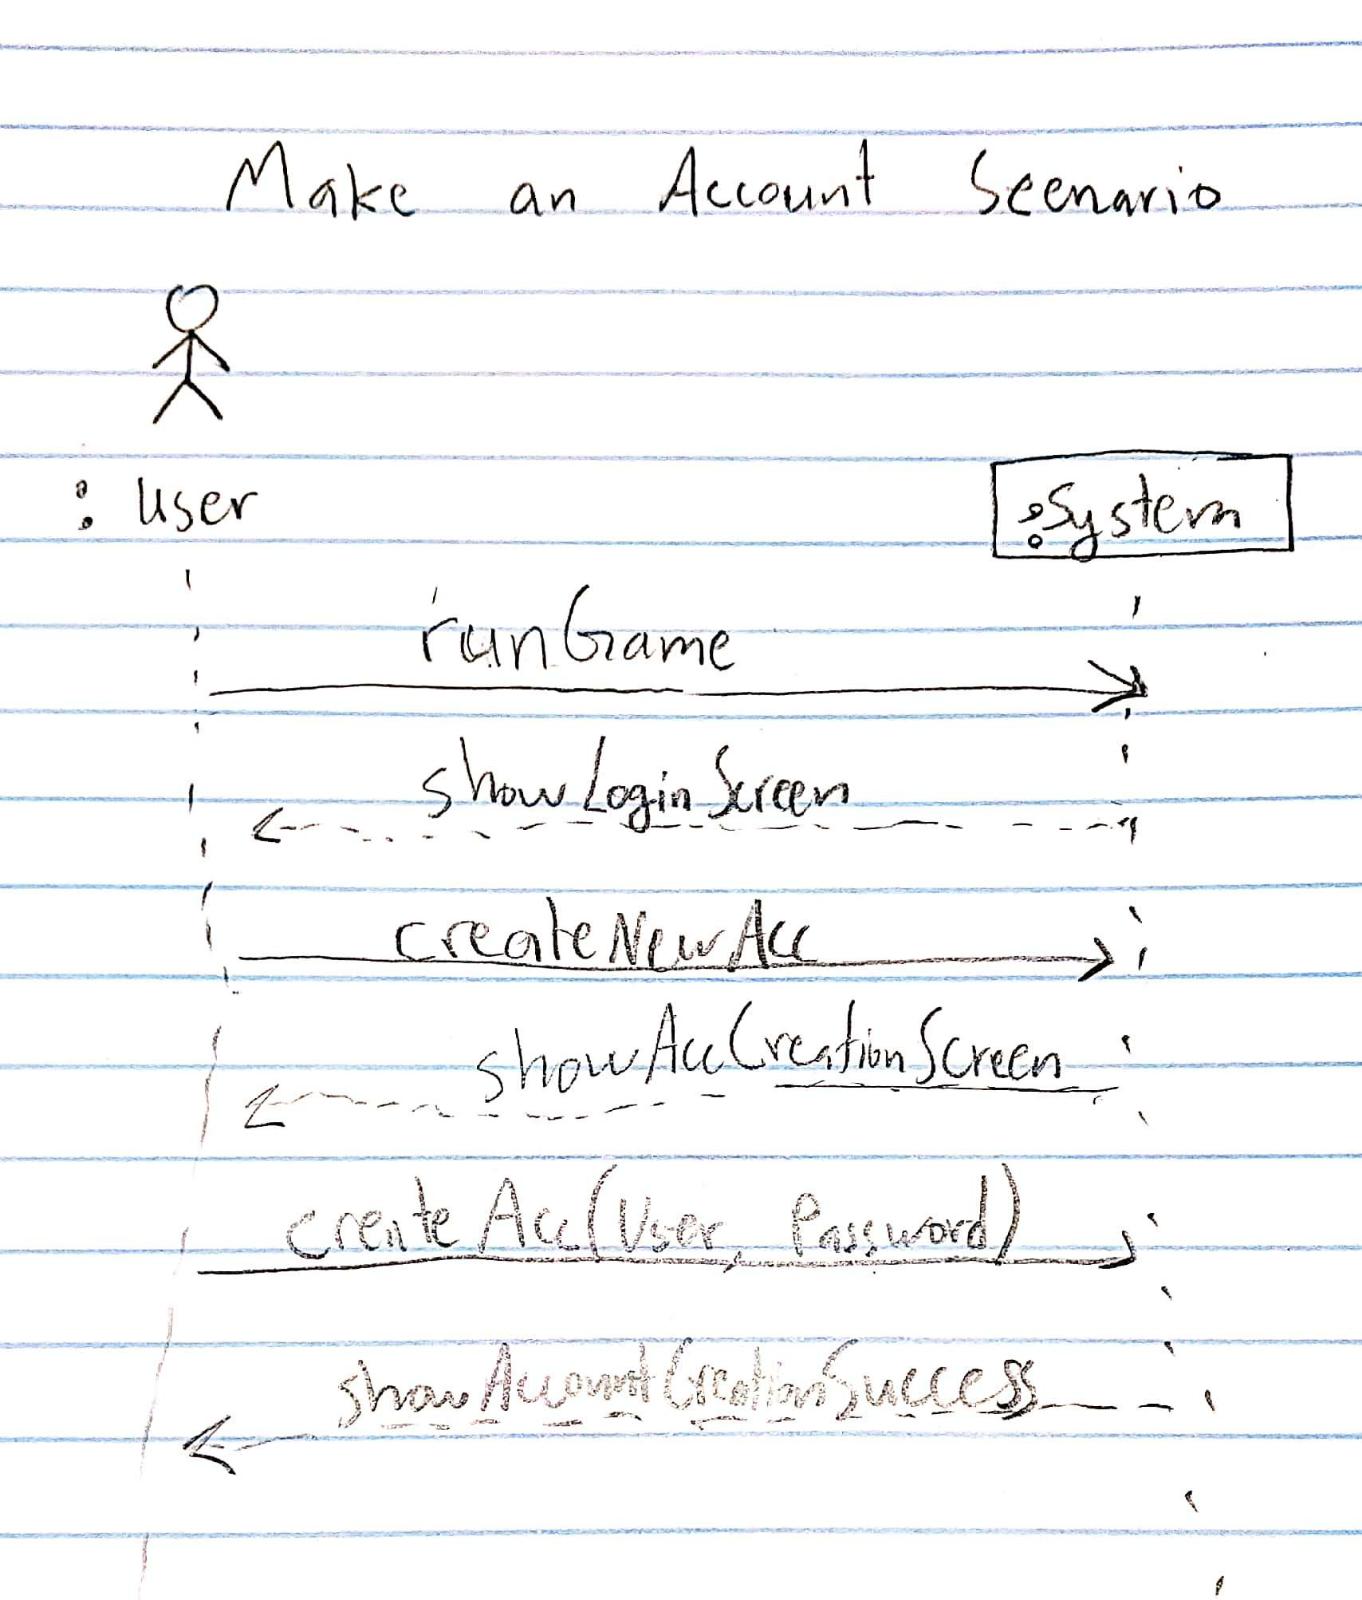 Make an Account Scenario
: user
:System
runGame
showLoginScreen
createNewAcc
showAccCreationScreen
createAcc(User, Password)
showAccountCreationSuccess